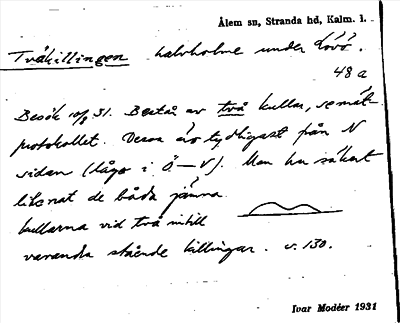 Ålem sn, Stranda hd, Kalm. l.
Tvåkillingen halvholme under Lövö.
48 a
Besök 10/8 31. Består av två kullar, se mat.
protokollet. Dessa äro tydligast från N
sidan (lågo i Ö—V). Man har säkert
liknat de båda jämna
kullarna vid två intill
varandra stående killingar. s. 130.
Ivar Modéer 1931